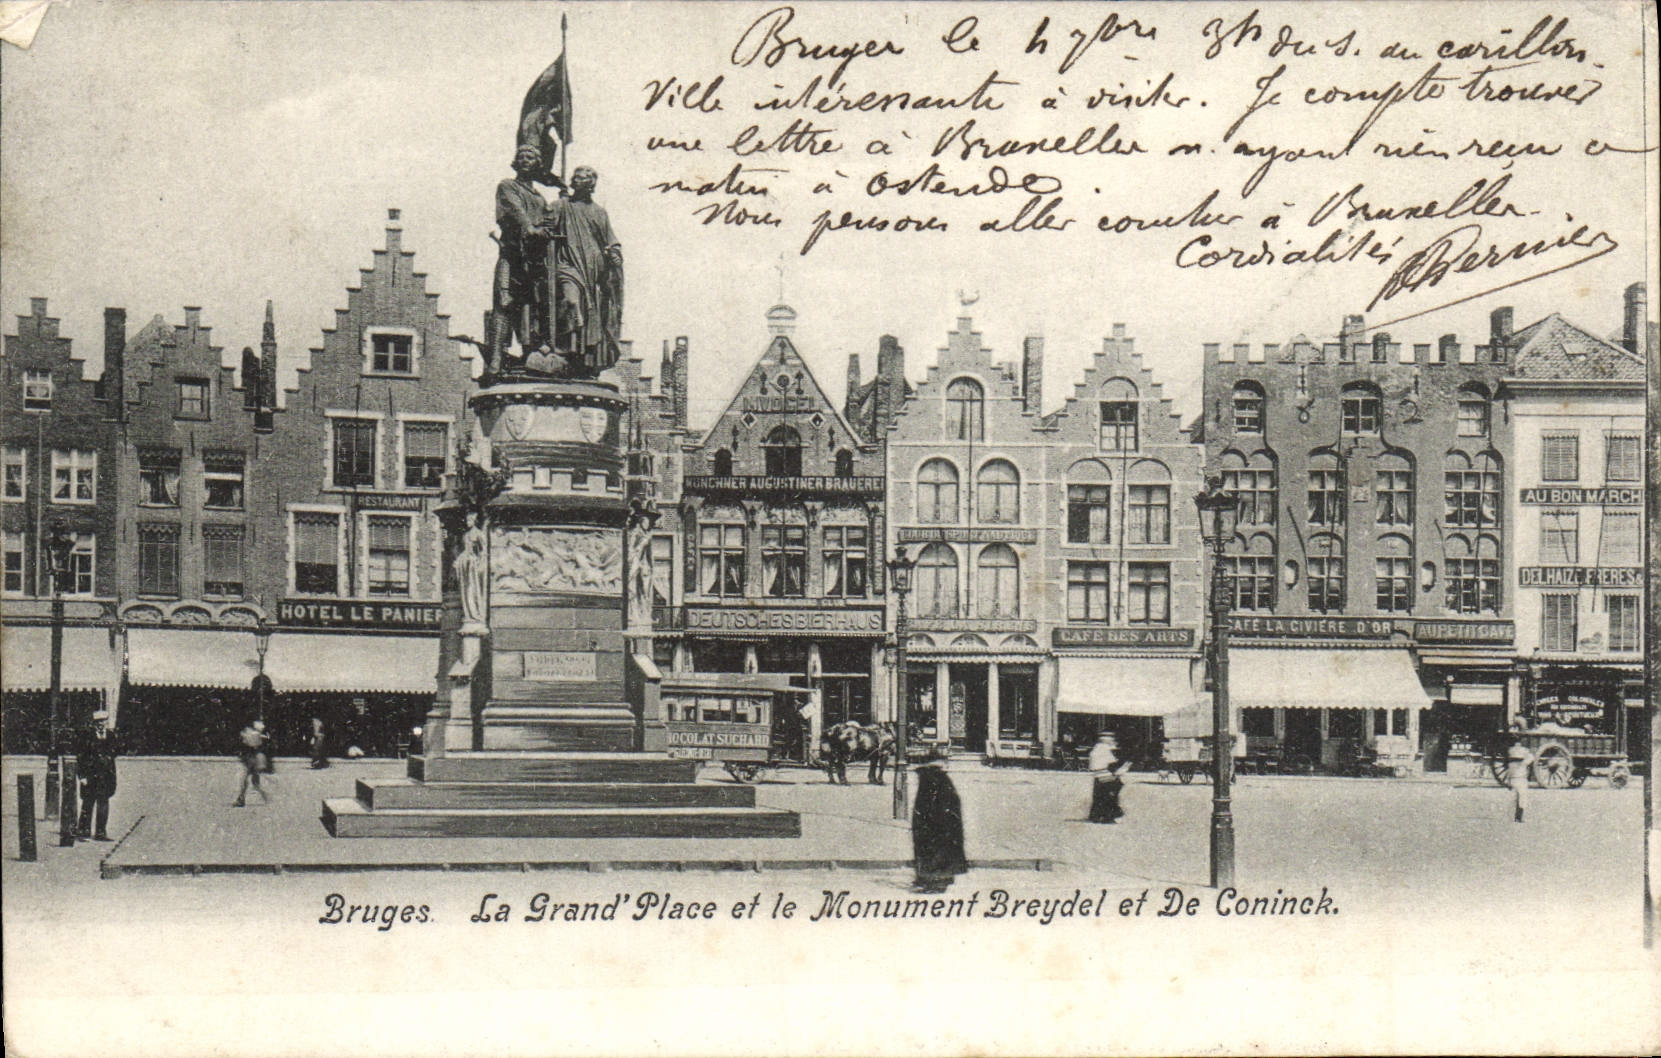 Bruges le 4 7bre 3h du s. au carillon.
Ville intéressante à visiter. Je compte trouver
une lettre à Bruxelles n'ayant rien reçu ce
matin à Ostende.
Nous pensons aller coucher à Bruxelles.
Cordialités
Bernier
NVOGEL
MÜNCHNER AUGUSTINER BRAUEREI
RESTAURANT
AU BON MARCH
DELHAIZE FRÈRES &
HOTEL LE PANIER
DEUTSCHES BIERHAUS
CAFÉ DES ARTS
CAFÉ LA CIVIÈRE D'OR
AU PETIT CAFÉ
HOCOLAT SUCHARD
Bruges. La Grand'Place et le Monument Breydel et De Coninck.